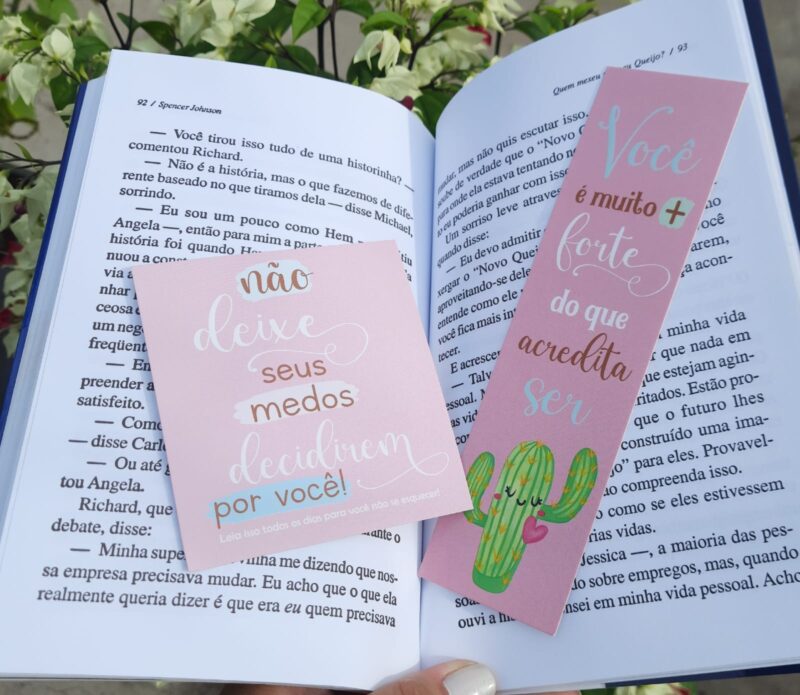 92 / Spencer Johnson
— Você tirou isso tudo de uma historinha? —
comentou Richard.
— Não é a história, mas o que fazemos de dife-
rente baseado no que tiramos dela — disse Michael,
sorrindo.
— Eu sou um pouco como Hem
Angela —, então para mim a parte
história foi quando Hem
nuou a
via a
nhar
ceosa
um neg
freqüent
— En
preender a
satisfeito.
— Como
— disse Carlo
— Ou até g
tou Angela.
Richard, que
debate, disse:
— Minha supe
minha me dizendo que nos-
sa empresa precisava mudar. Eu acho que o que ela
realmente queria dizer é que era eu quem precisava
não
deixe
seus
medos
decidirem
por você!
Leia isso todos os dias para você não se esquecer!
Quem mexeu
eu Queijo? / 93
mudar, mas não quis escutar isso.
soube de verdade que o “Novo Q
para onde ela estava tentando n
eu poderia ganhar com isso
Um sorriso leve atraves
quando disse:
— Eu devo admitir
xergar o “Novo Quei
aproveitando-se dele
entende como ele
você fica mais in
tecer.
E acrescen
— Talv
pessoal. M
as vidas
minha vida
que nada em
que estejam agin-
ritados. Estão pro-
que o futuro lhes
construído uma ima-
” para eles. Provavel-
compreenda isso.
como se eles estivessem
rias vidas.
Jessica —, a maioria das pes-
do sobre empregos, mas, quando
ouvi a his
ensei em minha vida pessoal. Acho
Você
é muito +
forte
do que
acredita
ser